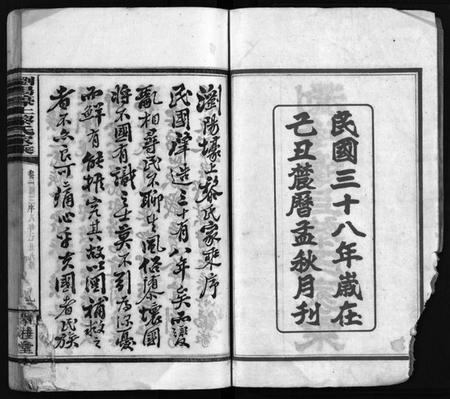 民國三十八年歲在
己丑農曆孟秋月刊
瀏陽壕上黎氏家乘序
民國肇造三十有八年矣而變
亂相尋民不聊生風俗隳壞國
將不國有識之士莫不引為深憂
而鮮有能探究其故以圖補救之
者不亦良可痛心乎夫國者民族